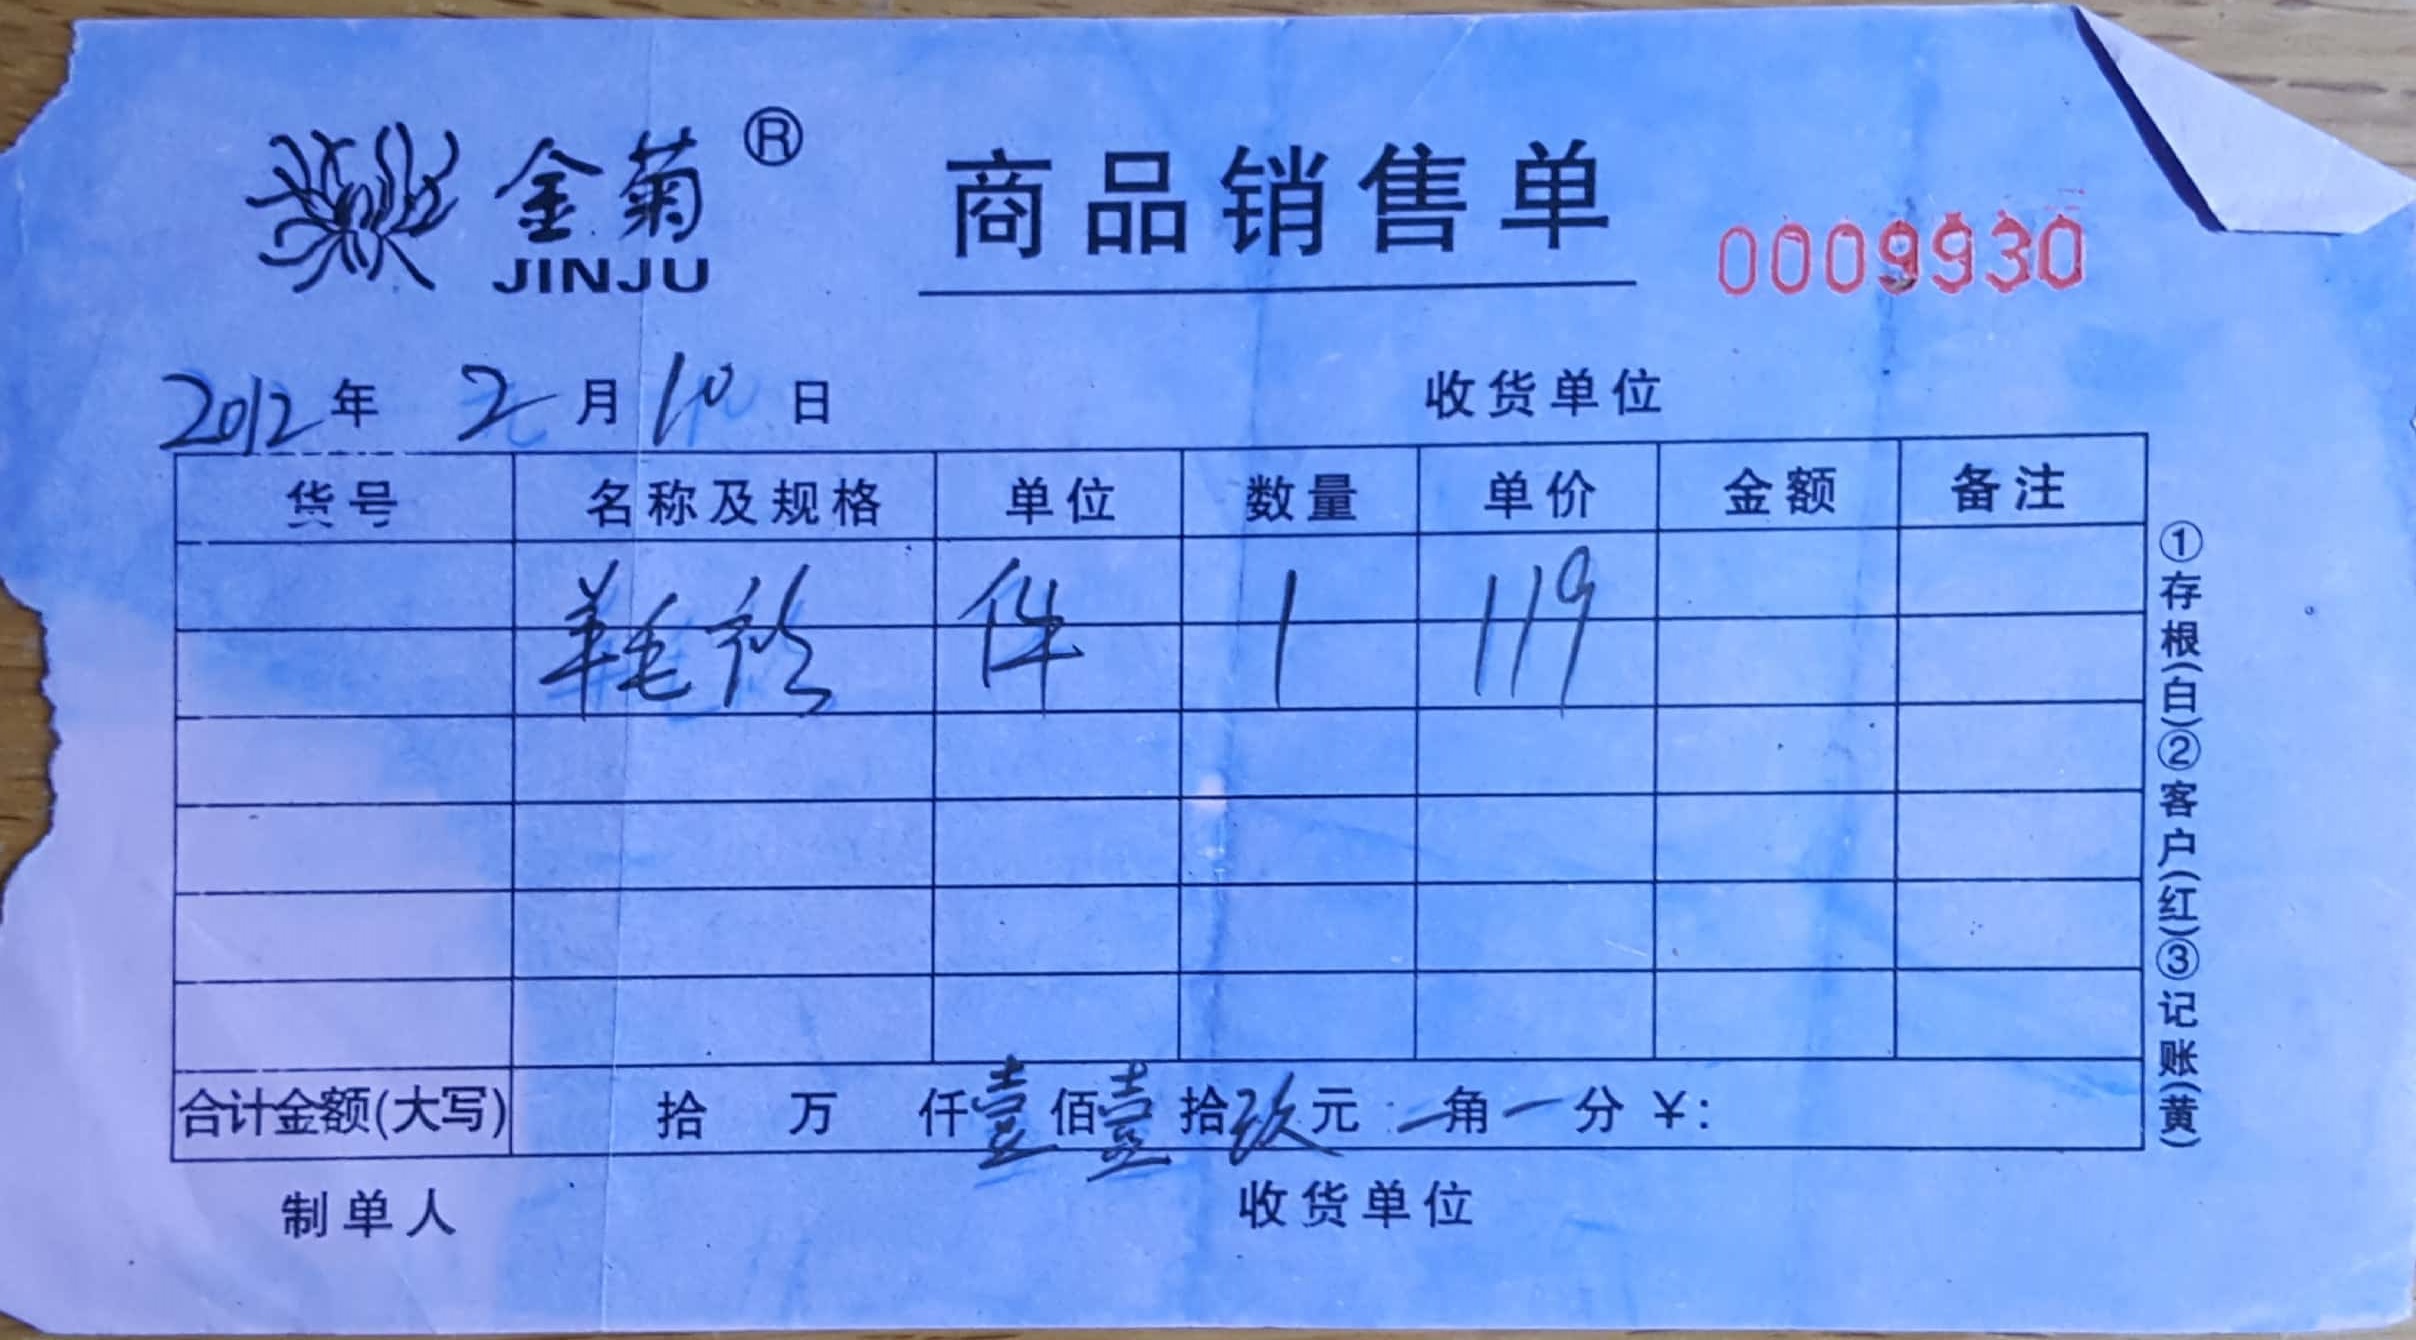 金菊®
JINJU
商品销售单
0009930
2012年 2月10日 收货单位
货号 名称及规格 单位 数量 单价 金额 备注
羊毛衫 件 1 119
合计金额(大写) 拾 万 仟壹佰壹拾玖元一角一分¥:
制单人 收货单位
①存根(白)②客户(红)③记账(黄)